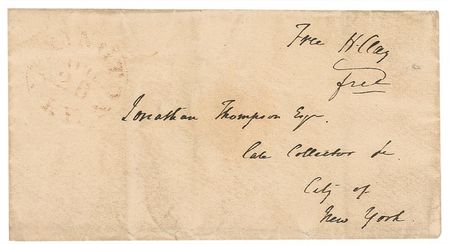 Free H Clay
free
Jonathan Thompson Esqr
late Collector &c.
City of
New York.